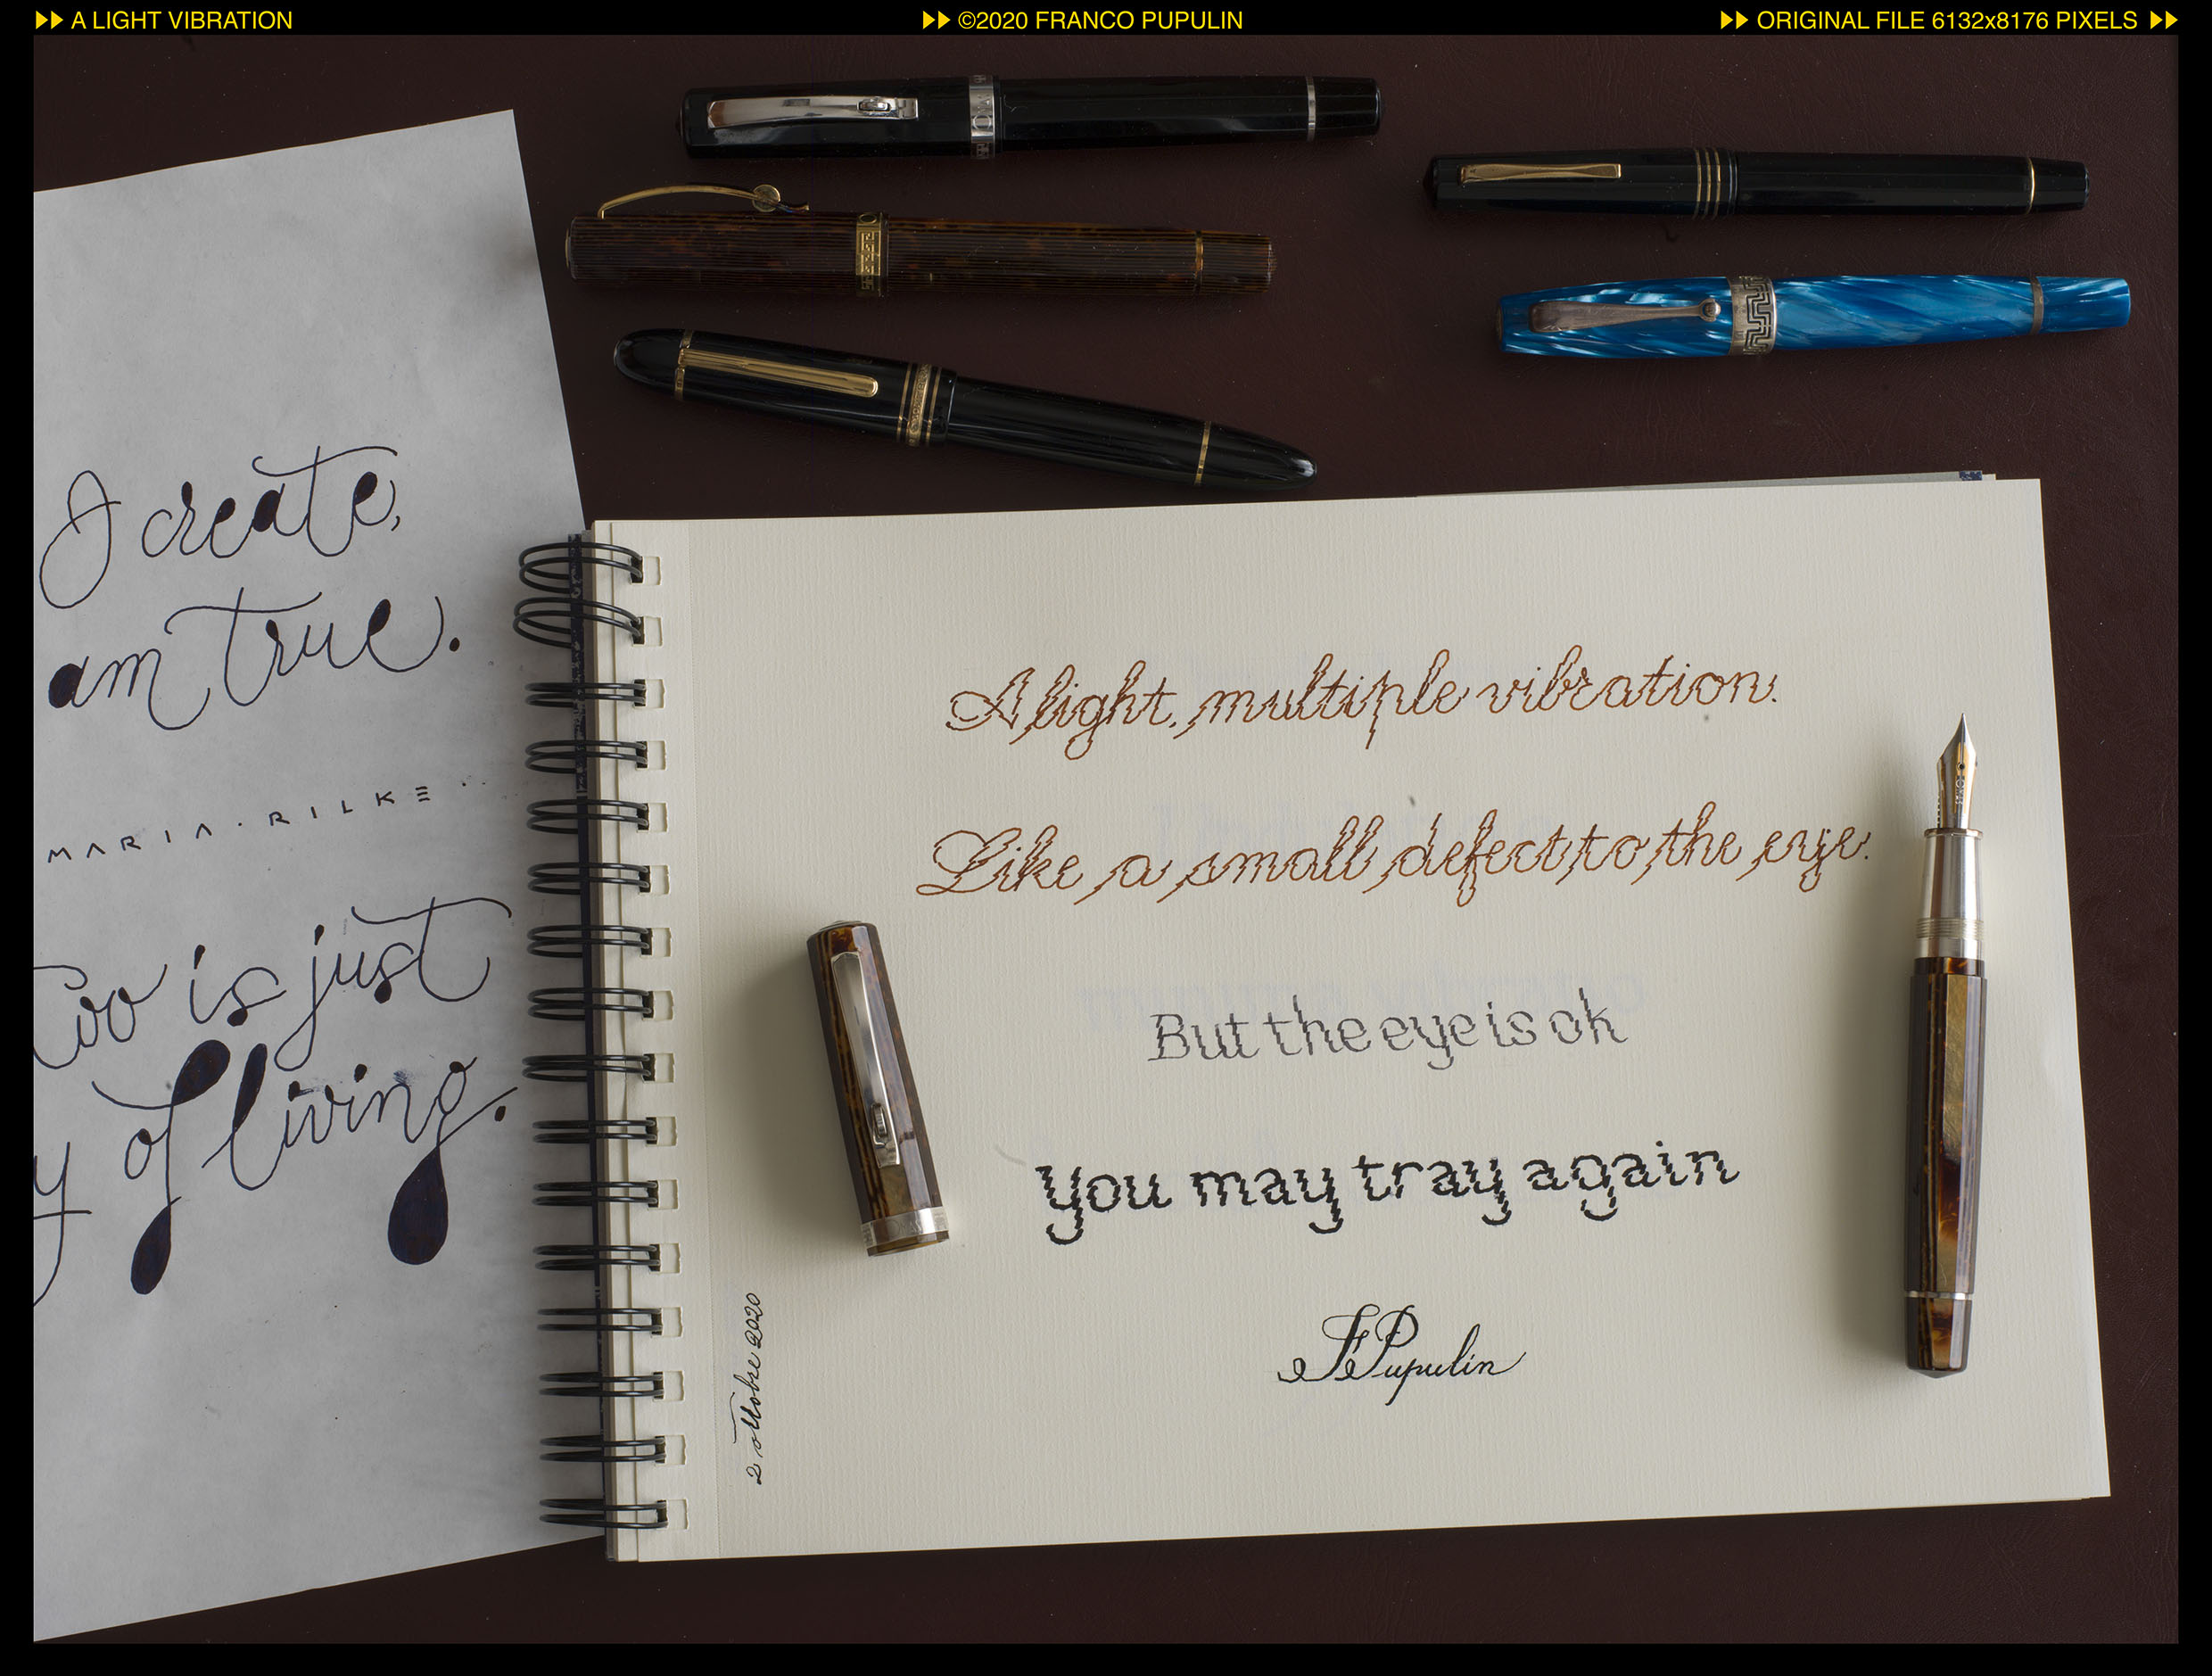 A LIGHT VIBRATION
©2020 FRANCO PUPULIN
ORIGINAL FILE 6132x8176 PIXELS
I create,
am true.
MARIA · RILKE
too is just
y of living.
A light, multiple vibration.
Like a small defect to the eye.
But the eye is ok
you may tray again
FPupulin
2 ottobre 2020